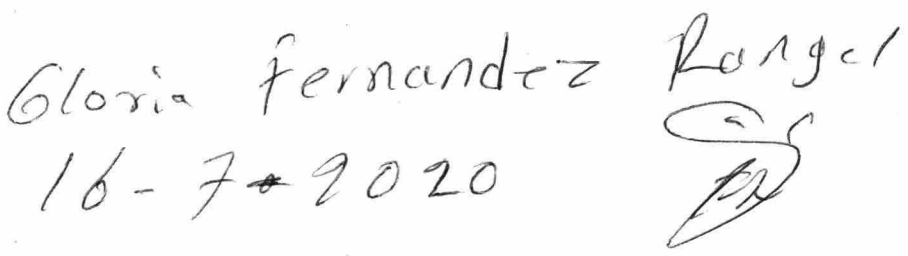 Gloria Fernandez Rangel
16-7-2020